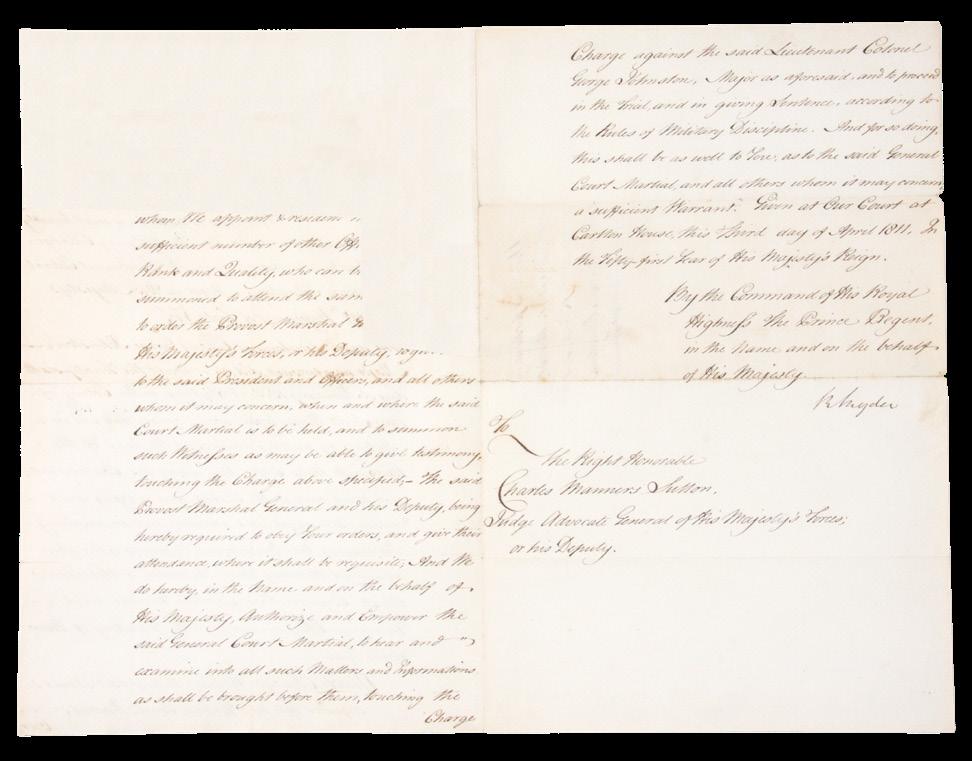 whom We appoint &
sufficient number of other
Rank and Quality, who can
summoned to attend the
to order the Provost Marshal
His Majesty's Forces, or his Deputy, to
to the said President and Officers, and all others
whom it may concern, when and where the said
Court Martial is to be held, and to summon
such Witnesses as may be able to give testimony
touching the Charge above specified,- The said
Provost Marshal General and his Deputy, being
hereby required to obey Your orders, and give their
attendance, where it shall be requisite; And We
do hereby, in the Name and on the behalf of
His Majesty, Authorize and Empower the
said General Court Martial, to hear and
examine into all such Matters and Informations
as shall be brought before them, touching the
Charge
Charge against the said Lieutenant Colonel
George Johnston, Major as aforesaid, and to proceed
in the Trial, and in giving Sentence, according to
the Rules of Military Discipline. And for so doing,
this shall be as well to You, as to the said General
Court Martial, and all others whom it may concern,
a sufficient Warrant. Given at Our Court at
Carlton House, this Third day of April 1811, In
the Fifty-first Year of His Majesty's Reign.
By the Command of His Royal
Highness The Prince Regent,
in the Name and on the behalf
of His Majesty
R Ryder
To
The Right Honorable
Charles Manners Sutton,
Judge Advocate General of His Majesty's Forces;
or his Deputy.